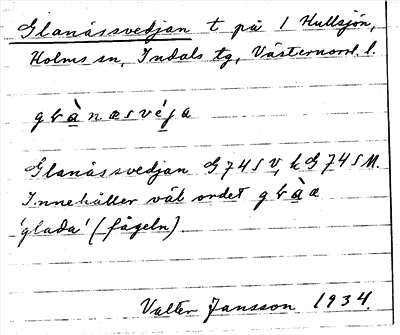 Glanåssvedjan t på 1 Hullsjön,
Holms sn, Indals tg, Västernorrl. l.
gƚànæsvéja
Glanåssvedjan G 74 S V, k G 74 S M.
Innehåller väl ordet gƚàa
'glada' (fågeln).
Valter Jansson 1934.